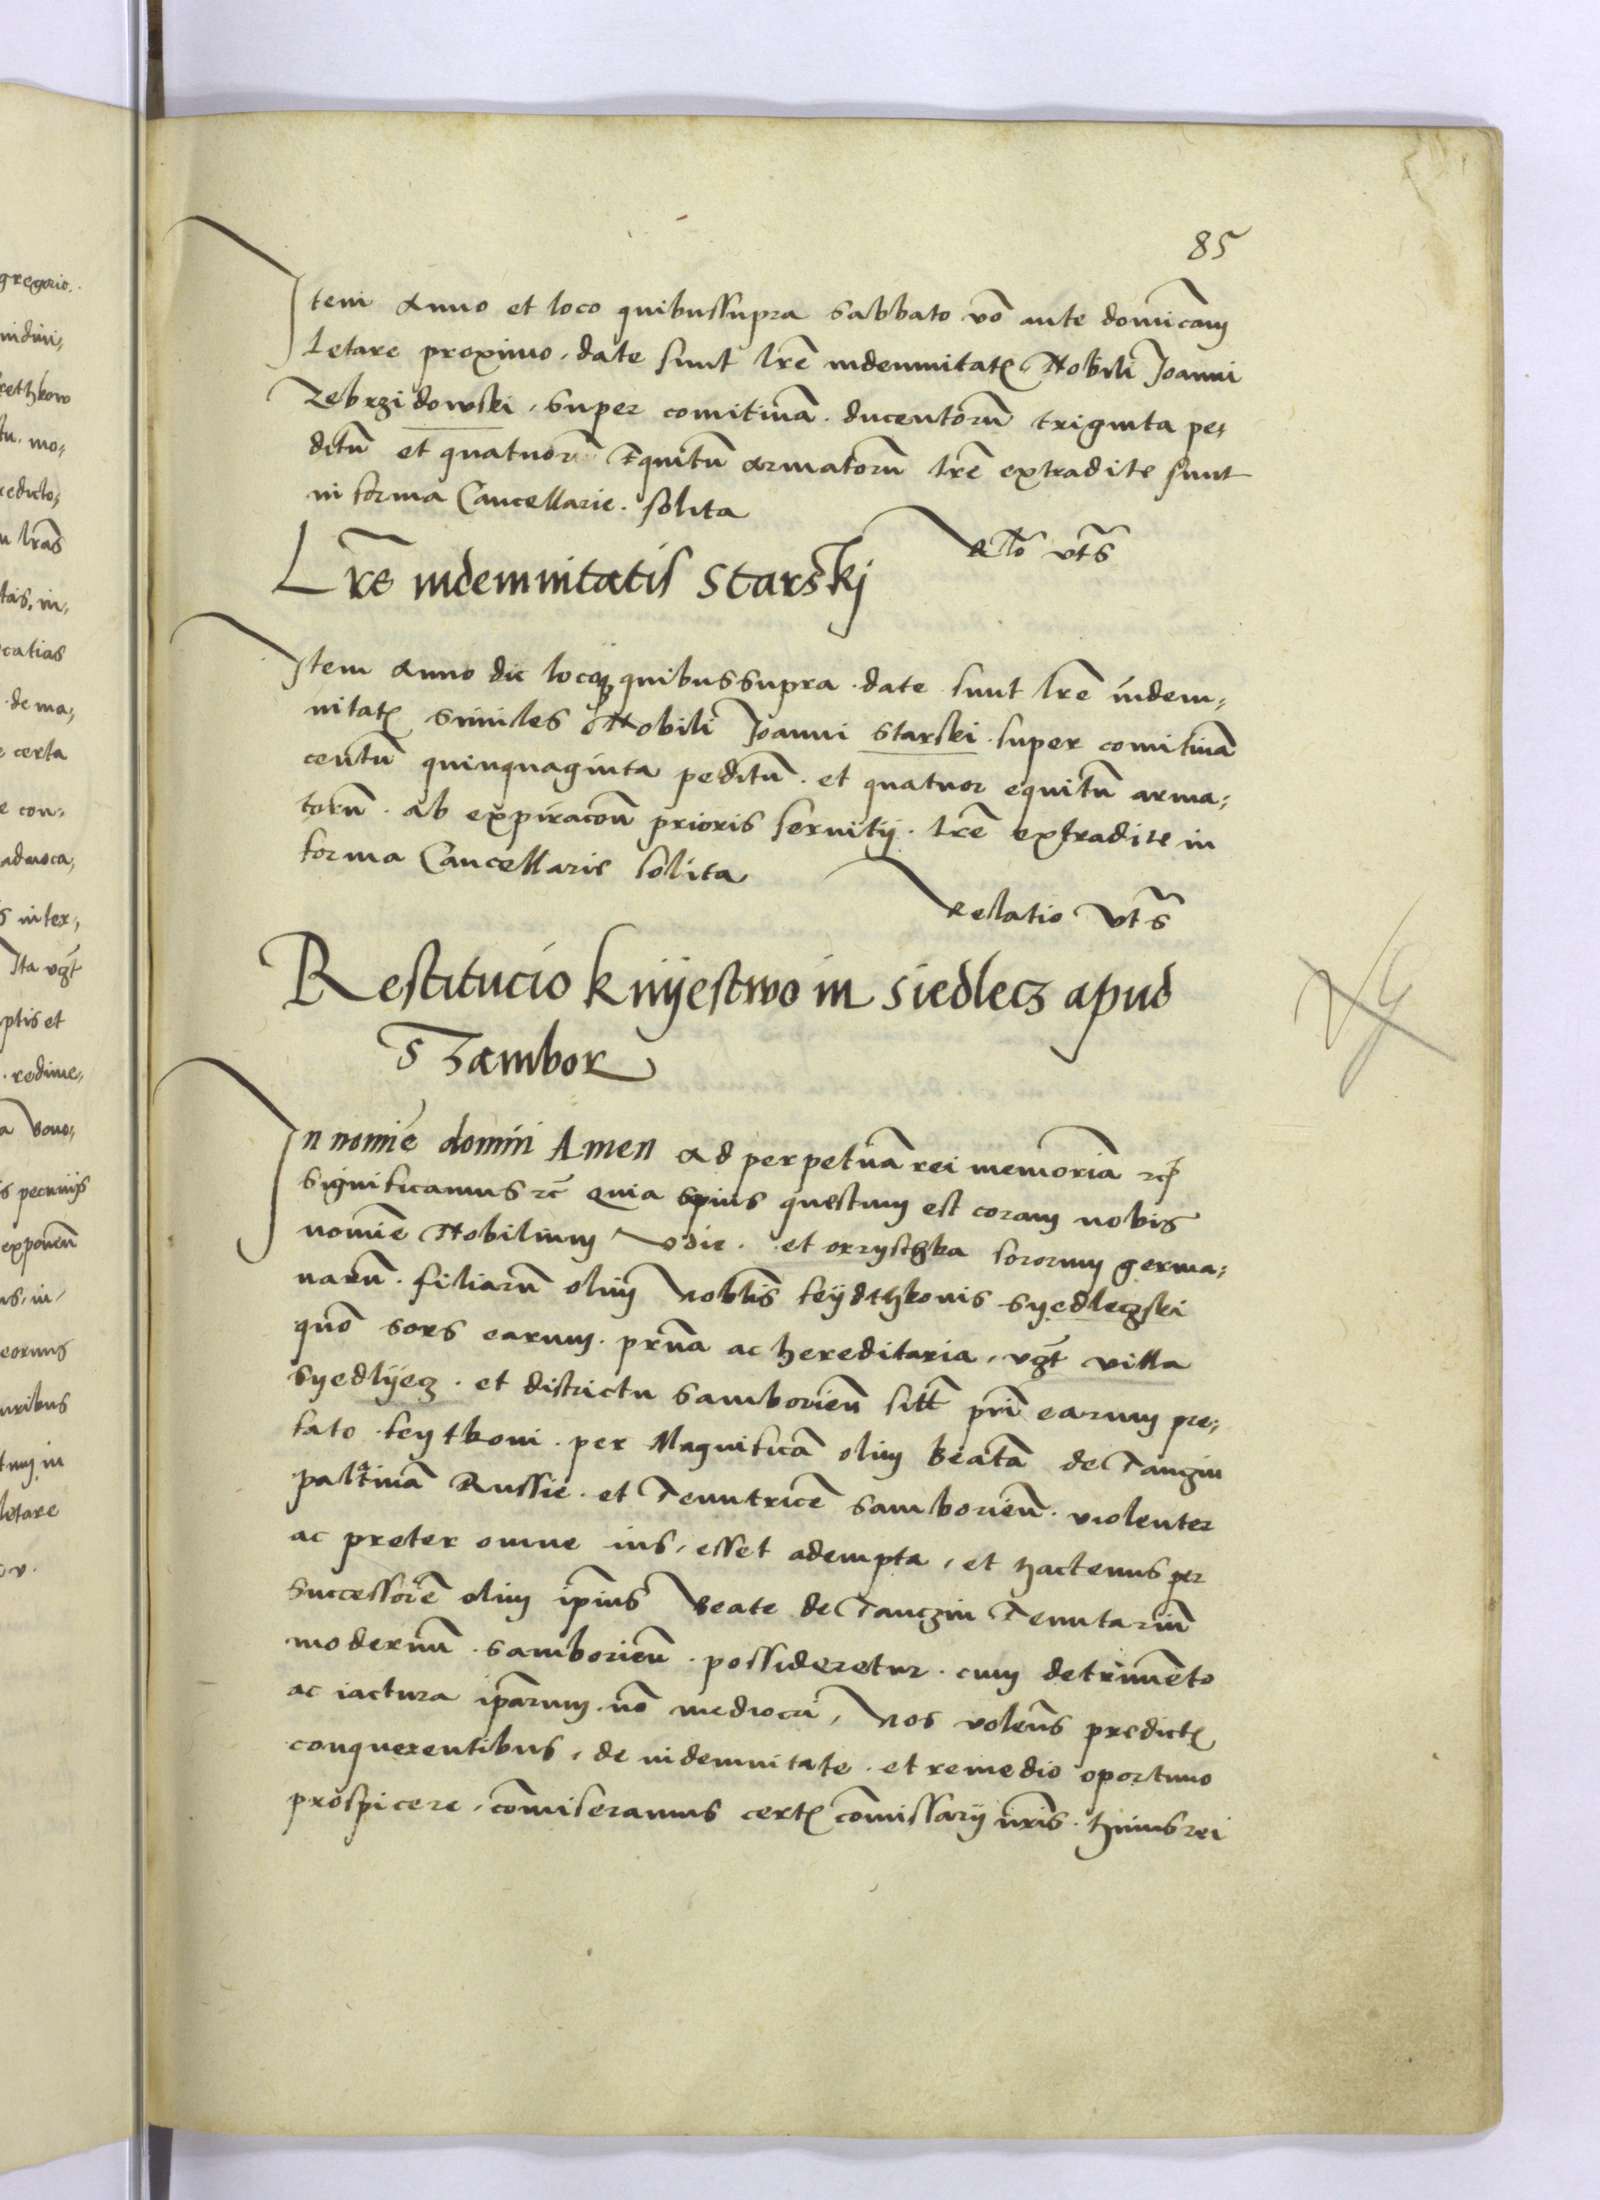 85
Item Anno et loco quibussupra Sabbato vo͂ ante domi͂cam
Letare proximo, date sunt lr͂e indemnitatꝭ Nobili Joanni
Zebrzidowski, super comitiua͂ ducentoru͂ triginta pe,
ditu͂ et quatuor Equitu͂ armatoru͂ lr͂e extradite sunt
in forma Cancellarie solita
Rl͂o vt s͂
Lr͂e indemnitatis Starskj
Item Anno die locoqꝫ quibussupra date sunt lr͂e indem,
nitatꝭ similes Nobili Joanni Starski super comitiua͂
centu͂ quinquaginta peditu͂ et quatuor equitu͂ arma,
toru͂ ab expiraco͂n prioris seruitij lr͂e extradite in
forma Cancellarie solita
Relatio vt s͂
Restitucio knijestwo in Siedlecz apud
Szambor
In nomi͂e domini Amen Ad perpetua͂ rei memoria͂ rcꝭ
Significamus rc͂ Quia sepius questum est coram nobis
nomi͂e Nobilium Vdie et orzyschka sororum germa,
naru͂ filiaru͂ olim Nobl͂is feijdthkonis Syedleczski
quo͂ sors earum pr͂na ac hereditaria, vg͂t villa
Syedlyecz et districtu Samborien͂ sitt͂ pr͂i earum pre,
fato feytkoni per Magnifica͂ olim Beata͂ de Tanczin
palatina͂ Russie et Tenutrice͂ Samborien͂ violenter
ac preter omne ius, esset adempta, et hactenus per
Successore͂ olim ip͂ius Beate de Tanczin Tenutariu͂
modernu͂ Samborien͂ possideretur cum detrime͂to
ac iactura ip͂arum no͂ mediocri, Nos volen͂s predictꝭ
conquerentibus, de indemnitate et remedio oportuno
prospicere, com͂iseramus certꝭ com͂issarij nr͂is huius rei